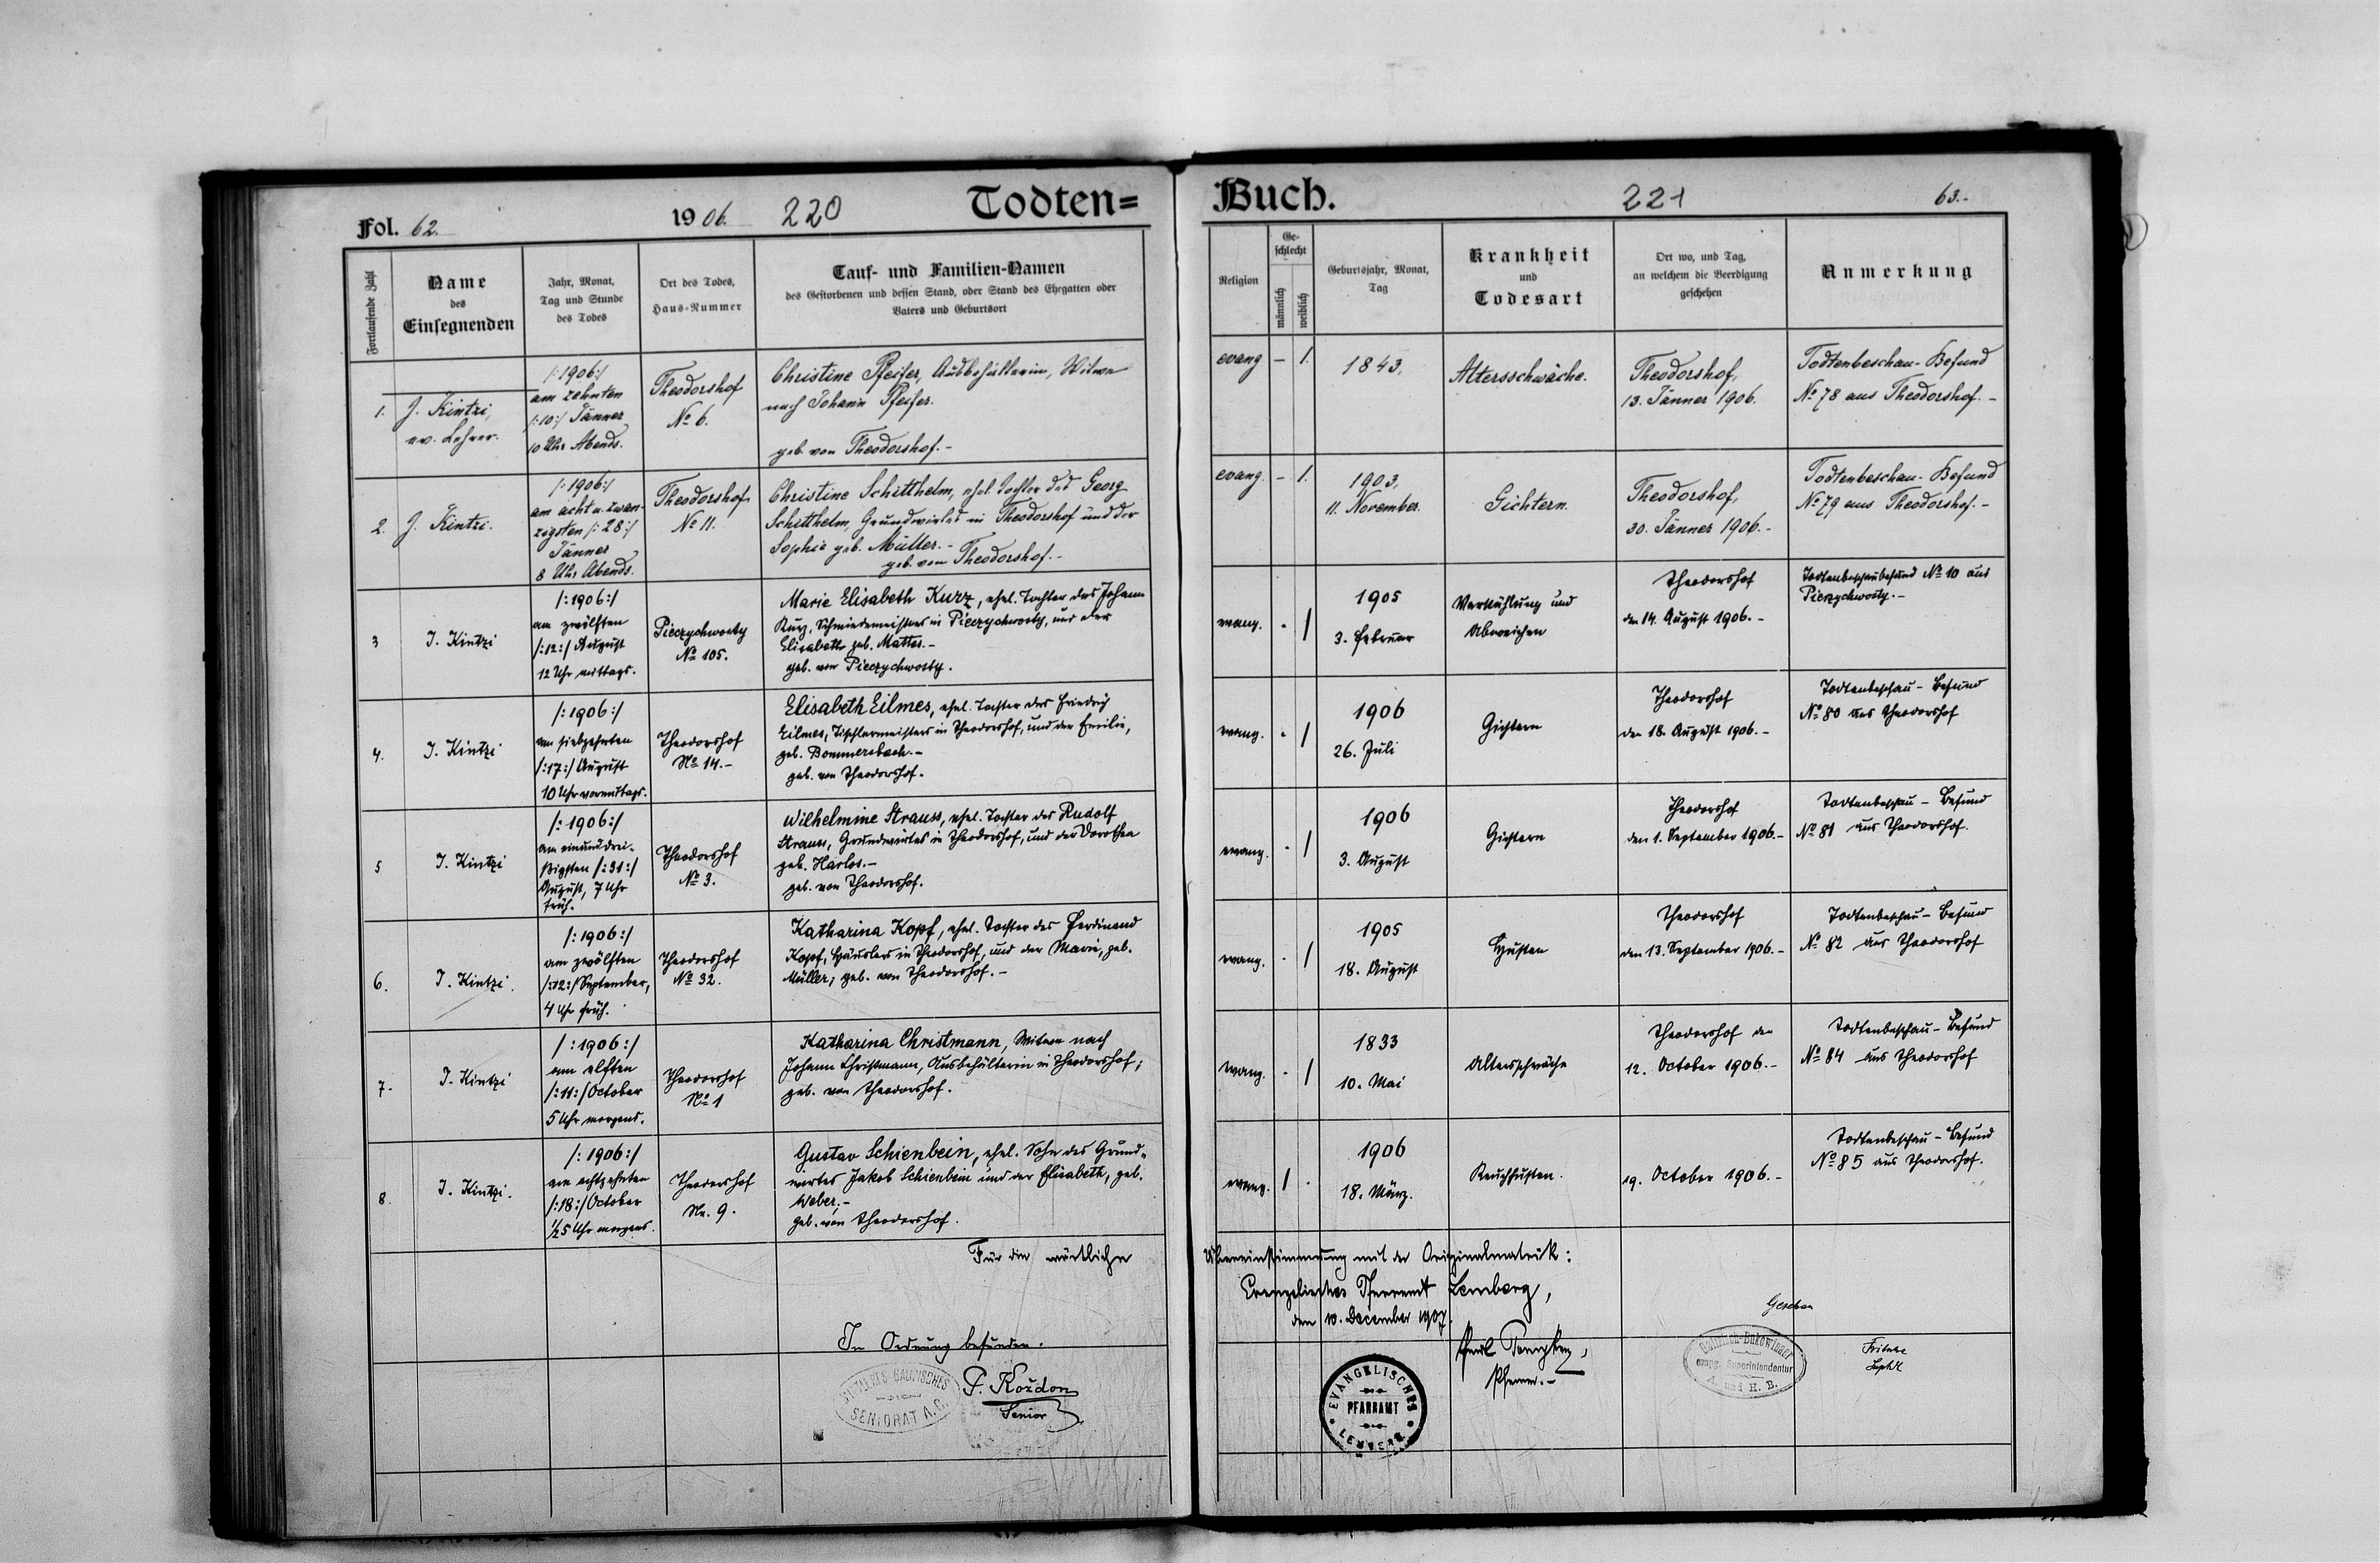 Fol. 62.
1906.
220
Todten=
Fortlaufende Zahl
Name
des
Einsegnenden
Jahr, Monat,
Tag und Stunde
des Todes
Ort des Todes,
Haus-Nummer
Tauf- und Familien-Namen
des Gestorbenen und dessen Stand, oder Stand des Ehegatten oder
Vaters und Geburtsort
1.
J. Kintzi,
ev. Lehrer.
/:1906:/
am zehnten
/:10:/ Jänner
10 Uhr Abends.
Theodorshof
No 6.
Christine Pfeifer, Ausbehälterin, Witwe
nach Johann Pfeifer.
geb. von Theodorshof.-
2.
J. Kintzi.
/:1906:/
am acht u. zwan-
zigsten /:28:/
Jänner
8 Uhr Abends.
Theodorshof
No 11.
Christine Schitthelm, ehel. Tochter des Georg
Schitthelm, Grundwirtes in Theodorshof und der
Sophie geb. Müller.-
geb. von Theodorshof.-
3
J. Kintzi
/:1906:/
am zwölften
/:12:/ August
12 Uhr mittags.
Pieczychwosty
No 105.
Marie Elisabeth Kurz, ehel. Tochter des Johann
Kurz, Schmiedemeisters in Pieczychwosty, und der
Elisabeth geb. Mattes.-
geb. von Pieczychwosty.
4.
J. Kintzi
/:1906:/
am siebzehnten
/:17:/ August
10 Uhr vormittags.
Theodorshof
No 14.-
Elisabeth Eilmes, ehel. Tochter des Friedrich
Eilmes, Tischlermeisters in Theodorshof, und der Emilie,
geb. Bommersbach.-
geb. von Theodorshof.
5
J. Kintzi
/:1906:/
am einunddrei-
ßigsten /:31:/
August, 7 Uhr
früh.
Theodorshof
No 3.
Wilhelmine Strauss, ehel. Tochter des Rudolf
Strauss, Grundwirtes in Theodorshof, und der Dorothea
geb. Harlos.-
geb. von Theodorshof.
6.
J. Kintzi.
/:1906:/
am zwölften
/:12:/ September,
4 Uhr früh.
Theodorshof
No 32.
Katharina Kopf, ehel. Tochter des Ferdinand
Kopf, Häuslers in Theodorshof, und der Marie, geb.
Müller; geb. von Theodorshof.-
7.
J. Kintzi
/:1906:/
am elften
/:11:/ October
5 Uhr morgens.
Theodorshof
No 1
Katharina Christmann, Witwe nach
Johann Christmann, Ausbehälterin in Theodorshof;
geb. von Theodorshof.
8.
J. Kintzi.
/:1906:/
am achtzehnten
/:18:/ October
1/2 5 Uhr morgens.
Theodorshof
Nr. 9.
Gustav Schienbein, ehel. Sohn des Grund-
wirtes Jakob Schienbein und der Elisabeth, geb.
Weber.-
geb. von Theodorshof.
Für die wörtliche
In Ordnung befunden.
SENIORAT A.C.
P. Kozdon
Senior
Buch.
221
63.-
Religion
Ge-
schlecht
männlich
weiblich
Geburtsjahr, Monat,
Tag
Krankheit
und
Todesart
Ort wo, und Tag,
an welchem die Beerdigung
geschehen
Anmerkung
evang - 1.
1843,
Altersschwäche.
Theodorshof,
13. Jänner 1906.
Todtenbeschau-Befund
No 78 aus Theodorshof.-
evang. - 1.
1903,
11. November.
Gichtern.
Theodorshof,
30. Jänner 1906.-
Todtenbeschau-Befund
No 79 aus Theodorshof.-
evang. . 1
1905
3. Februar
Verkühlung und
Abweichen
Theodorshof
den 14. August 1906.-
Todtenbeschaubefund No 10 aus
Pieczychwosty.-
evang. . 1
1906
26. Juli
Gichtern
Theodorshof
den 18. August 1906.-
Todtenbeschau-Befund
No 80 aus Theodorshof
evang. . 1
1906
3. August
Gichtern
Theodorshof
den 1. September 1906.-
Todtenbeschau-Befund
No 81 aus Theodorshof.
evang. . 1
1905
18. August
Husten
Theodorshof
den 13. September 1906.-
Todtenbeschau-Befund
No 82 aus Theodorshof
evang. . 1
1833
10. Mai
Altersschwäche
Theodorshof den
12. October 1906.-
Todtenbeschau-Befund
No 84 aus Theodorshof
evang. 1 .
1906
18. März.
Keuchhusten.
19. October 1906.-
Todtenbeschau-Befund
No 85 aus Theodorshof.
Übereinstimmung mit der Originalmatrik:
Evangelisches Pfarramt Lemberg,
den 10. December 1907.
Pfarrer.-
EVANGELISCHES
PFARRAMT
LEMBERG
Gesehen
Galizisch-Bukowinaer
evang. Superintendentur
A. und H. B.
Fritsche